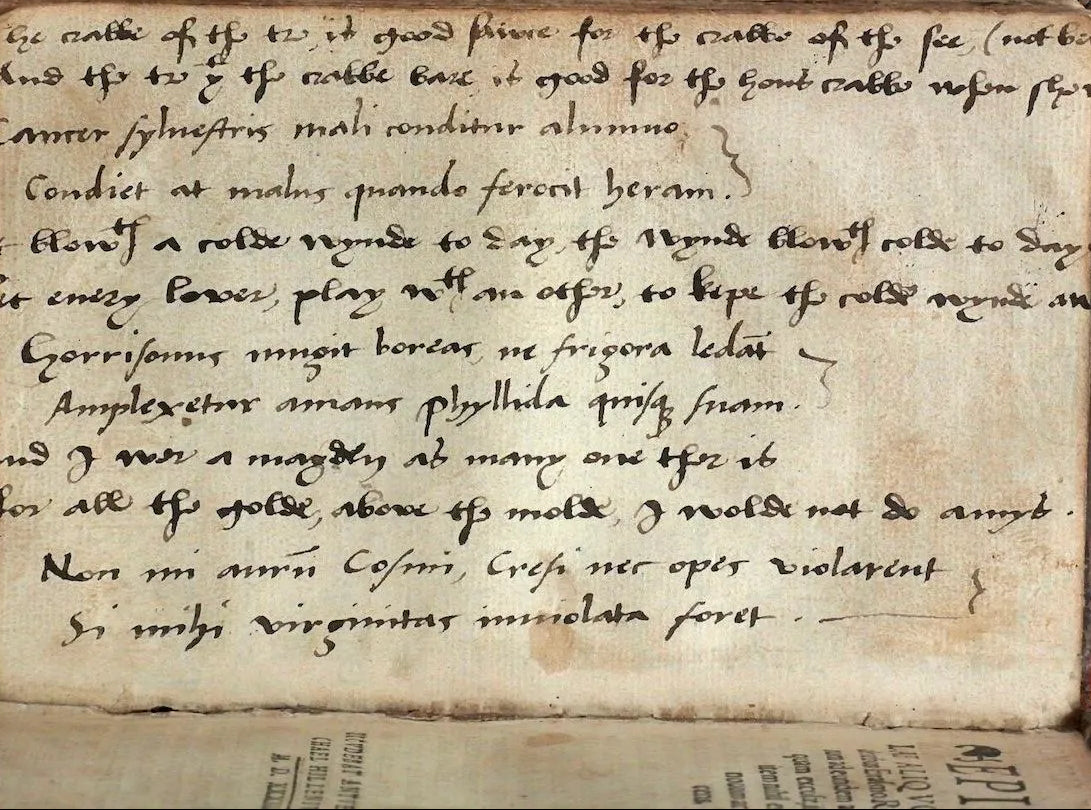 he crabbe of the tre is good sawce for the crabbe of the see, (not be
And the tre yt the crabbe bare is good for the hous crabbe when she
Cancer sylvestris mali conditur alumno
Condiet at malus quando ferocit heram.
blowth a colde wynde to day, the wynde blowth colde to day
et every lover, play wth an other, to kepe the colde wynde aw
Horrisonus mugit boreas, ne frigora ledāt
Amplexetur amans phyllida quisq suam.
nd I wer a mayden as many one ther is
for all the golde, above the molde, I wolde not do amys.
Non mi aurū Cosmi, Cresi nec opes violarent
Si mihi virginitas inviolata foret.